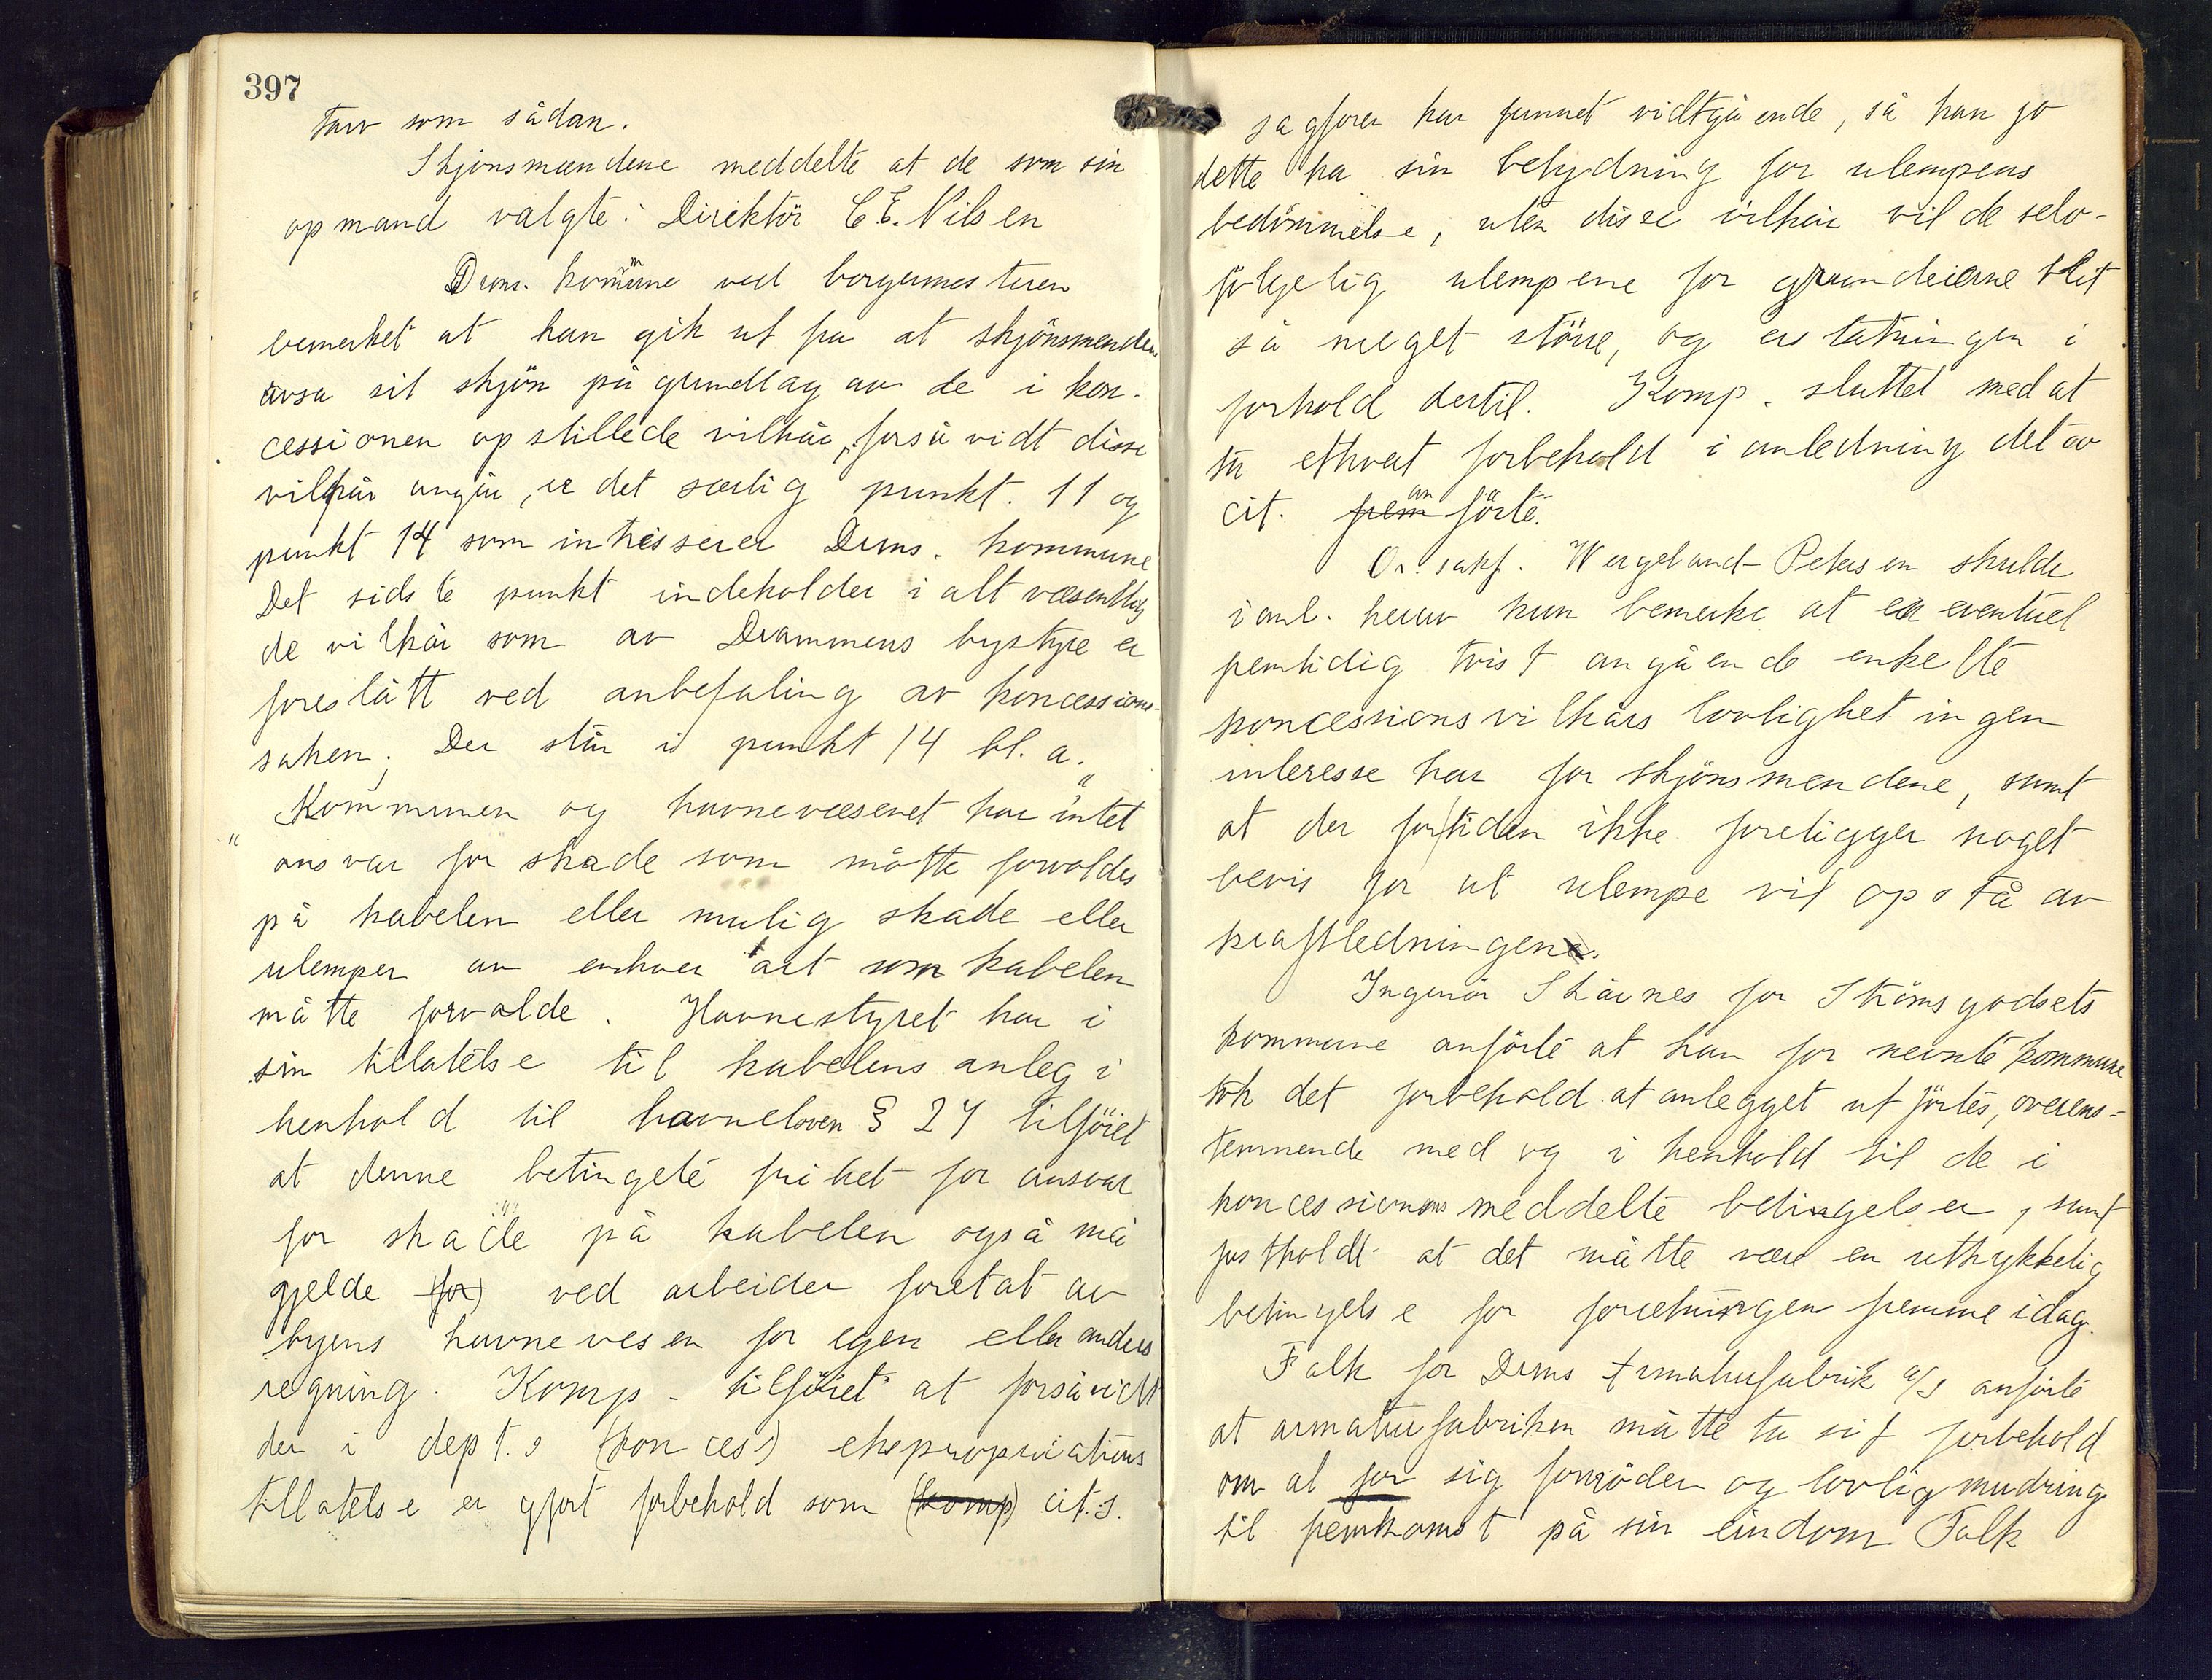 397
tarv som sådan.
Skjønsmændene meddelte at de som sin
opmand valgte: Direktør C E. Nilsen
Drms. komune ved borgermesteren
bemerket at han gik ut fra at skjønsmendene
avsa sit skjøn på grundlag av de i kon-
cessionen opstillede vilkår, forsåvidt disse
vilkår angår, er det særlig punkt. 11 og
punkt 14 som intresserer Drms. kommune
Det sidste punkt indeholder i alt væsentlig
de vilkår som av Drammens bystyre er
foreslått ved anbefaling av koncessions-
saken; Der står i punkt 14 bl. a.
"Kommunen og havnevæsenet har intet
ansvar for skade som måtte forvoldes
på kabelen eller mulig skade eller
ulemper av enhver art som kabelen
måtte forvolde. Havnestyret har i
sin tillatelse til kabelens anleg i
henhold til havneloven § 24 tilføiet
at denne betingete frihet for ansvar
for skade på kabelen også må
gjelde (for) ved arbeider foretat av
byens havnevesen for egen eller andres
regning. Komp. tilføiet at forsåvidt
der i dept.s (konces) ekspropriations
tillatelse er gjort forbehold som (komp) cit.s.
sagfører har funnet vidtgående, så kan jo
dette ha sin betydning for ulempens
bedömmelse, uten disse vilkår vil de selv-
følgelig ulempene for grundeierne blit
så meget större, og erstatningen i
forhold dertil. Komp. sluttet med at
ta ethvert forbehold i anledning det av
cit. frem anførte.
O.r. sakf. Wergeland-Petersen skulde
i anl. herav kun bemerke at en eventuel
fremtidig tvist angående enkelte
koncessionsvilkårs lovlighet ingen
interesse har for skjønsmendene, samt
at der for tiden ikke foreligger noget
bevis for at ulempe vil opstå av
kraftledningene.
Ingeniør Skårnes for Strømsgodsets
kommune anførte at han for nevnte kommune
tok det forbehold at anlegget utførtes, overens-
temmende med og i henhold til de i
koncessionens meddelte betingelser, samt
fastholdt at det måtte være en uttrykkelig
betingelse for forretningen fremme idag.
Falk for Drms Armaturfabrik a/s anførte
at armaturfabriken måtte ta sit forbehold
om at for sig forröden og lovlig mudring
til fremkomst på sin eindom Falk